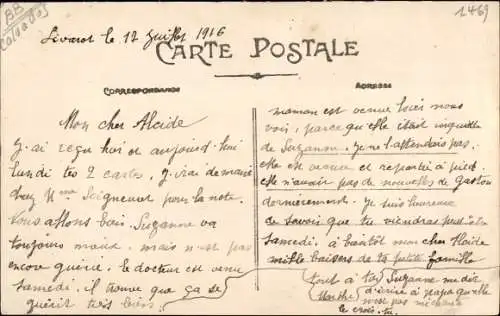 BB
Calvados
1469
Livarot le 17 Juillet 1916
CARTE POSTALE
CORRESPONDANCE
Mon cher Alcide
J'ai reçu hier et aujourd'hui
lundi tes 2 cartes, j'irai demain
chez Mme Seigneur pour la note.
Nous allons bien, Suzanne va
toujours mieux mais n'est pas
encore guérie. le docteur est venu
Samedi. il trouve que ça se
guérit très bien.
ADRESSE
maman est venue hier nous
voir, parce qu'elle était inquiète
de Suzanne. je ne l'attendais pas.
elle est venue et repartie à pied.
elle n'avait pas de nouvelles de Gaston
dernièrement. Je suis heureuse
de savoir que tu viendras
Samedi. à bientôt mon cher Alcide
mille baisers de ta petite famille
tout à toi Suzanne me dit
Marthe d'écrire à papa qu'elle
n'est pas méchante
le crois-tu.